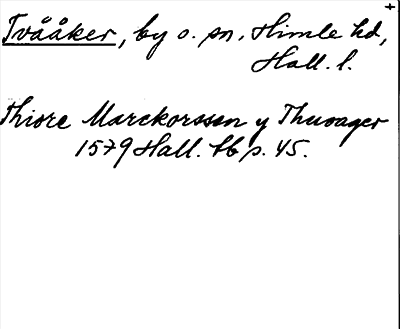 Tvååker, by o. sn, Himle hd,
Hall. l.
Thiore Marckorssen y Thuoager
1579 Hall. tb p. 45.